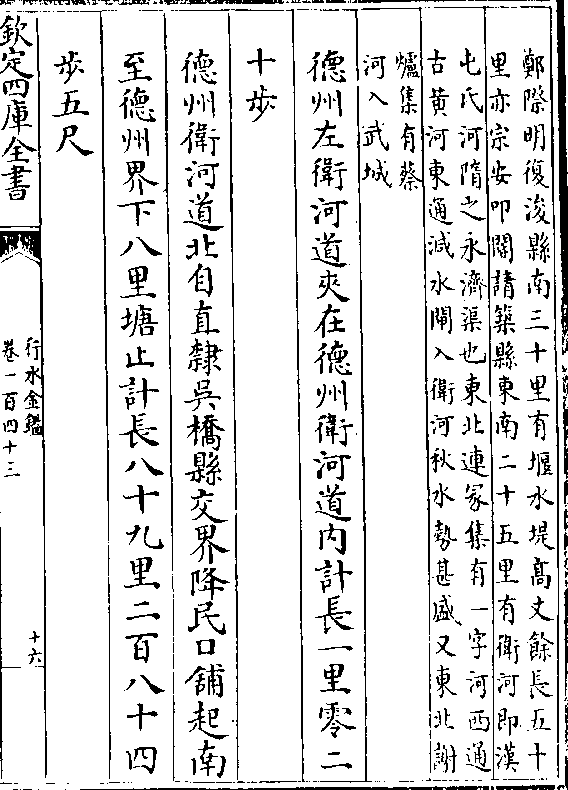 鄭際明復浚縣南三十里有堰水堤高丈餘長五十
里亦宗安叩閽請築縣東南二十五里有衛河即漢
屯氏河隋之永濟渠也東北連冢集有一字河西通
古黄河東通減水閘入衛河秋水勢甚盛又東北謝
爐集有蔡
河入武城
德州左衛河道夾在德州衛河道内計長一里零二
十歩
德州衛河道北自直隸吳橋縣交界降民口舖起南
至德州界下八里塘止計長八十九里二百八十四
歩五尺
欽定四庫全書
行水金鑑
卷一百四十三
十六